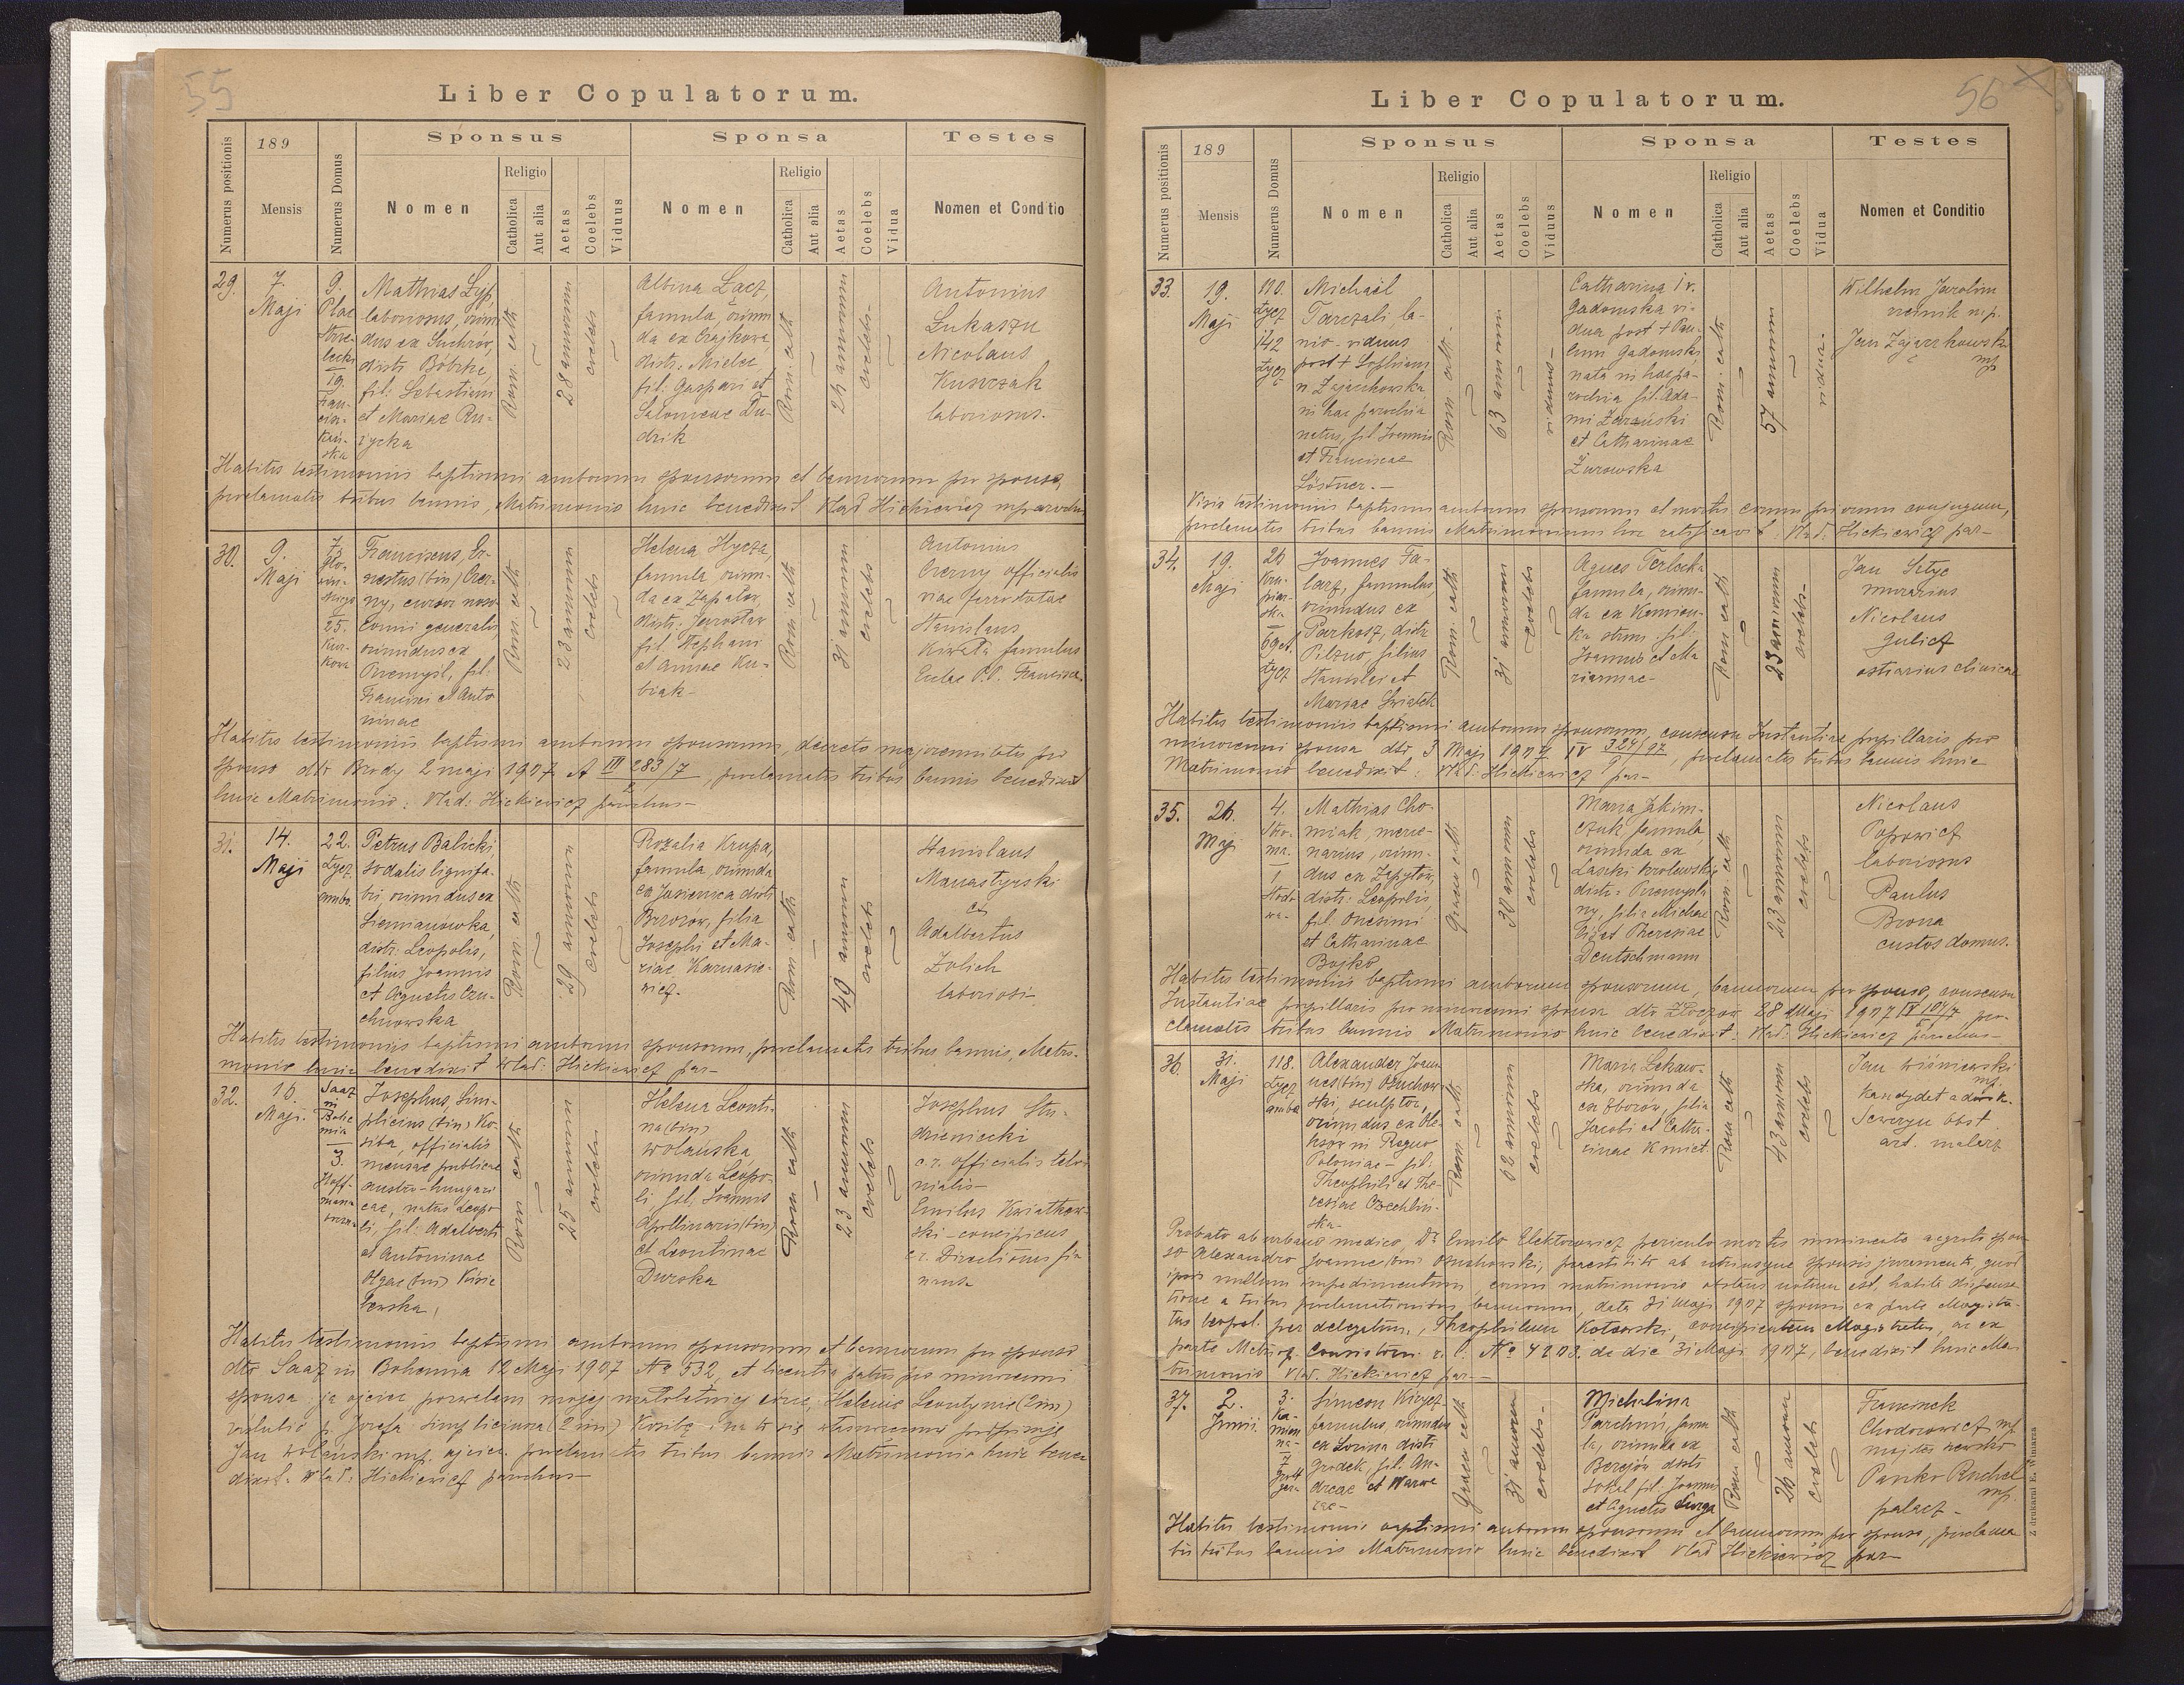 55
Liber Copulatorum.
Numerus positionis
189
Mensis
Numerus Domus
Sponsus
Nomen
Religio
Catholica
Aut alia
Aetas
Coelebs
Viduus
Sponsa
Nomen
Religio
Catholica
Aut alia
Aetas
Coelebs
Vidua
Testes
Nomen et Conditio
29.
7.
Maji
9.
Plac
Strze-
lecki
19.
Fran-
cisz-
kań-
ska
Mathias Łyp,
laboriosus, oriun-
dus ex Suchrow,
distr. Bóbrka,
fil: Sebastiani
et Mariae Ru-
życka
Rom. cath
28 annorum
coelebs
Albina Łącz,
famula, oriun
da ex Czajkowa,
distr: Mielec
fil: Gaspari et
Salomeae Du-
dzik
Rom. cath
24 annorum
coelebs
Antonius
Łukaszu
Nicolaus
Kuszczak
laboriosus.
Habitis testimoniis baptismi amborum sponsorum et bannorum pro sponso,
proclamatis tribus bannis, Matrimonio huic benedixit Wład Hickiewicz mp parochus
30.
9.
Maji
7.
Gło-
wiń-
skiego
25.
Kur-
kowa
Franciscus, Er-
nestus (bin) Czer-
ny, cursor noso-
comii generalis
oriundus ex
Przemyśl, fil.
Francisci et Anto
ninae
Rom. cath
23 annorum
coelebs
Helena Hycza,
famula, oriun-
da ex Zapałów,
distr: Jarosław
fil. Stephani
et Annae Ku-
biak
Rom. cath
31 annorum
coelebs
Antonius
Czerny officialis
viae ferro statae
Stanislaus
Kiwała famulus
Eccl. P.P. Francisca.
Habitis testimoniis baptismi amborum sponsorum, decreto majorennitatis pro
sponso dto Brody 2 maji 1907 A III 283/7, proclamatis tribus bannis benedixit
huic Matrimonio: Wład: Hickiewicz parochus
31.
14.
Maji
22.
Łycz
ambo
Petrus Balicki,
sodalis lignifa-
bri, oriundus ex
Siemianówka,
distr: Leopolis,
filius Joannis
et Agnetis Czu-
chnowska
Rom cath
29 annorum
coelebs
Rozalia Krupa,
famula, oriunda
ex Jasienica distr
Brzozow, filia
Josephi et Ma-
riae Karnasie-
wicz.
Rom. cath
49 annorum
coelebs
Stanislaus
Manastyrski
et
Adalbertus
Zolich
laboriosi
Habitis testimoniis baptismi amborum sponsorum, proclamatis tribus bannis, Matri-
monio huic benedixit Wład: Hickiewicz par
32.
16.
Maji.
Saaz
in
Bohe
mia
3.
Hoff-
mana
Josephus, Sim-
plicius (bin) Ko-
siba, officialis
mensae publicae
austro-hungari
cae, natus Leopo
li, fil: Adalberti
et Antoninae
Olgae (bin) Kisie
lewska,
Rom cath
25 annorum
coelebs
Helena Leonti-
na (bin)
Wolańska,
oriunda Leopo-
li, fil: Joannis
Apollinaris (bin)
et Leontinae
Durska
Rom cath
23 annorum
coelebs
Josephus Stu-
dzieniecki
c.r. officialis telo-
nialis
Emilus Kwiatkow-
ski - concipicus
c.r. Directionis fi
nansa
Habitis testimoniis baptismi amborum sponsorum et bannorum pro sponso
dto Saaz in Bohemia 12 Maji 1907 No 532, et licentia patris pro minorenni
sponsa ja ojciec pozwalam mojej małoletniej córce, Helenie Leontynie (2im)
zaślubić p. Józefa Simpliciusza (2im) Kosibę i na to się własnoręcznie podpisuję
Jan Wolański mp. ojciec. proclamatis tribus bannis Matrimonio huic bene
dixit. Wład: Hickiewicz parochus
56
Liber Copulatorum.
Numerus positionis
189
Mensis
Numerus Domus
Sponsus
Nomen
Religio
Catholica
Aut alia
Aetas
Coelebs
Viduus
Sponsa
Nomen
Religio
Catholica
Aut alia
Aetas
Coelebs
Vidua
Testes
Nomen et Conditio
33.
19.
Maji
110.
Łycz
142
Łycz
Michael
Tarczali, la-
nio - viduus
post + Sophiam
n Zajączkowska
in hac parochia
natus, fil. Joannis
et Franciscae
Löstner.
Rom cath.
63 annorum
viduus
Catharina 1 v.
Gadomska vi-
dua post + Pau-
lum Gadomski,
nata in hac pa-
rochia fil. Ada-
mi Zarzuński
et Catharinae
Żurowska
Rom. cath
57 annorum
vidua.
Wilhelm Jarolim
rzeźnik m.p.
Jan Zajączkowski
mp
Visis testimoniis baptismi amborum sponsorum et mortis eorum priorum conjugum,
proclamatis tribus bannis Matrimonium hoc ratificavit: Wład: Hickiewicz par
34.
19.
Maji
26
Kru-
piar-
ska
69 et.
Łycz
Joannes Ta-
larz, famulus,
oriundus ex
Parkosz, distr
Pilzno, filius
Stanislai et
Mariae Świątek
Rom. cath
31 annorum
coelebs
Agnes Terlecka
famula, oriun-
da ex Kamion-
ka strum. fil:
Joannis et Ma
riannae
Rom cath
23 annorum
coelebs
Jan Sztyc
murarius
Nicolaus
Gulicz
ostiarius clinicae
Habitis testimoniis baptismi amborum sponsorum, consensu Instantiae pupillaris pro
minorenni sponsa dto 3 Maji 1907 IV 324/97, proclamatis tribus bannis huic
Matrimonio benedixit: Wład: Hickiewicz par
35.
26.
Maji
4.
Stro-
ma.
1
Mathias Cho-
miak, merce-
narius, oriun-
dus ex Zapytów,
distr: Leopolis,
fil. Onesimi
et Catharinae
Bojko
Graeco cath
30 annorum
coelebs
Maria Jakim-
czuk famula,
oriunda ex
Laszki królewskie
distr: Przemyśla
ny, filia Michae
lis et Theresiae
Deutschmann
Rom. cath
23 annorum
coelebs
Nicolaus
Popowicz
laboriosus
Paulus
Brona
custos domus.
Habitis testimoniis baptismi amborum sponsorum, bannorum pro sponso, consensu
Instantiae pupillaris pro minorenni sponsa dto Złoczów 28 Maji 1907 pro-
clamatis tribus bannis Matrimonio huic benedixit: Wład: Hickiewicz parochus
36.
31.
Maji
118.
Łycz
ambo
Alexander Joan
nes (bin) Osuchow
ski, sculptor,
oriundus ex Ole
ksow in Regno
Poloniae - fil:
Theophili et The-
resiae Czechliń-
ska
Rom cath
62 annorum
coelebs
Maria Lekaw-
ska, oriunda
ex Oborów, filia
Jacobi et Catha-
rinae Kmiet.
Rom cath
43 annorum
coelebs
Jan Wiśniewski
mp.
Kandydat adwok.
Seweryn Obst
art. malarz
Probato ab urbano medico, Dr Emilo Elektorowicz periculo mortis imminente aegroto spon
so Alexandro Joanne (bin) Osuchowski, praestitis ab utriusque sponsis juramento, quod
ipsis nullum impedimentum eorum matrimonio obstans notum est, habita dispensa
tione a tribus proclamationibus bannorum, data 31 Maji 1907 sponsis ex parte Magistra-
tus leopol. per delegatum, Theophilum Kotowski, concipientem Magistratus, ac ex
parte Metrop. Consistorii r. l. No 4203. de die 31 Maji 1907, benedixit huic Ma
trimonio Wład. Hickiewicz par
37.
2.
Junii.
3.
Ka-
mien
na
Simeon Kirycz
famulus, oriundus
ex Lorina distr
Grodek, fil. An-
dreae et Warwa
rae
Graeco cath
31 annorum
coelebs
Michalina
Parchuń, famu
la, oriunda ex
distr
Sokal fil. Joannis
et Agnetis Surga
Rom cath
26 annorum
coelebs
Franciszek
Chodorowicz mp
majster szewski
Panko Ruchel
mp.
palacz
Habitis testimoniis baptismi amborum sponsorum et bannorum pro sponso, proclama
tis tribus bannis Matrimonio huic benedixit Wład Hickiewicz par
Z drukarni E. Winiarza